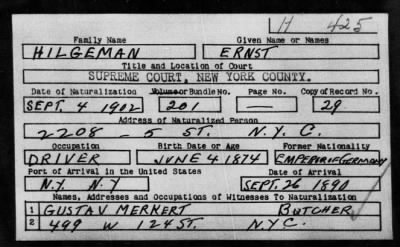 H 425
Family Name Given Name or Names
HILGEMAN ERNST
Title and Location of Court
SUPREME COURT, NEW YORK COUNTY.
Date of Naturalization Volume or Bundle No. Page No. Copy of Record No.
SEPT. 4 1902 201 — 29
Address of Naturalized Person
2208 - 5 ST. N.Y.C.
Occupation Birth Date or Age Former Nationality
DRIVER JUNE 4 1874 EMPEROR OF GERMANY
Port of Arrival in the United States Date of Arrival
N.Y. N.Y SEPT. 26 1890
Names, Addresses and Occupations of Witnesses To Naturalization
1 GUSTAV MERKERT BUTCHER
2 499 W 124 ST. N.Y.C.